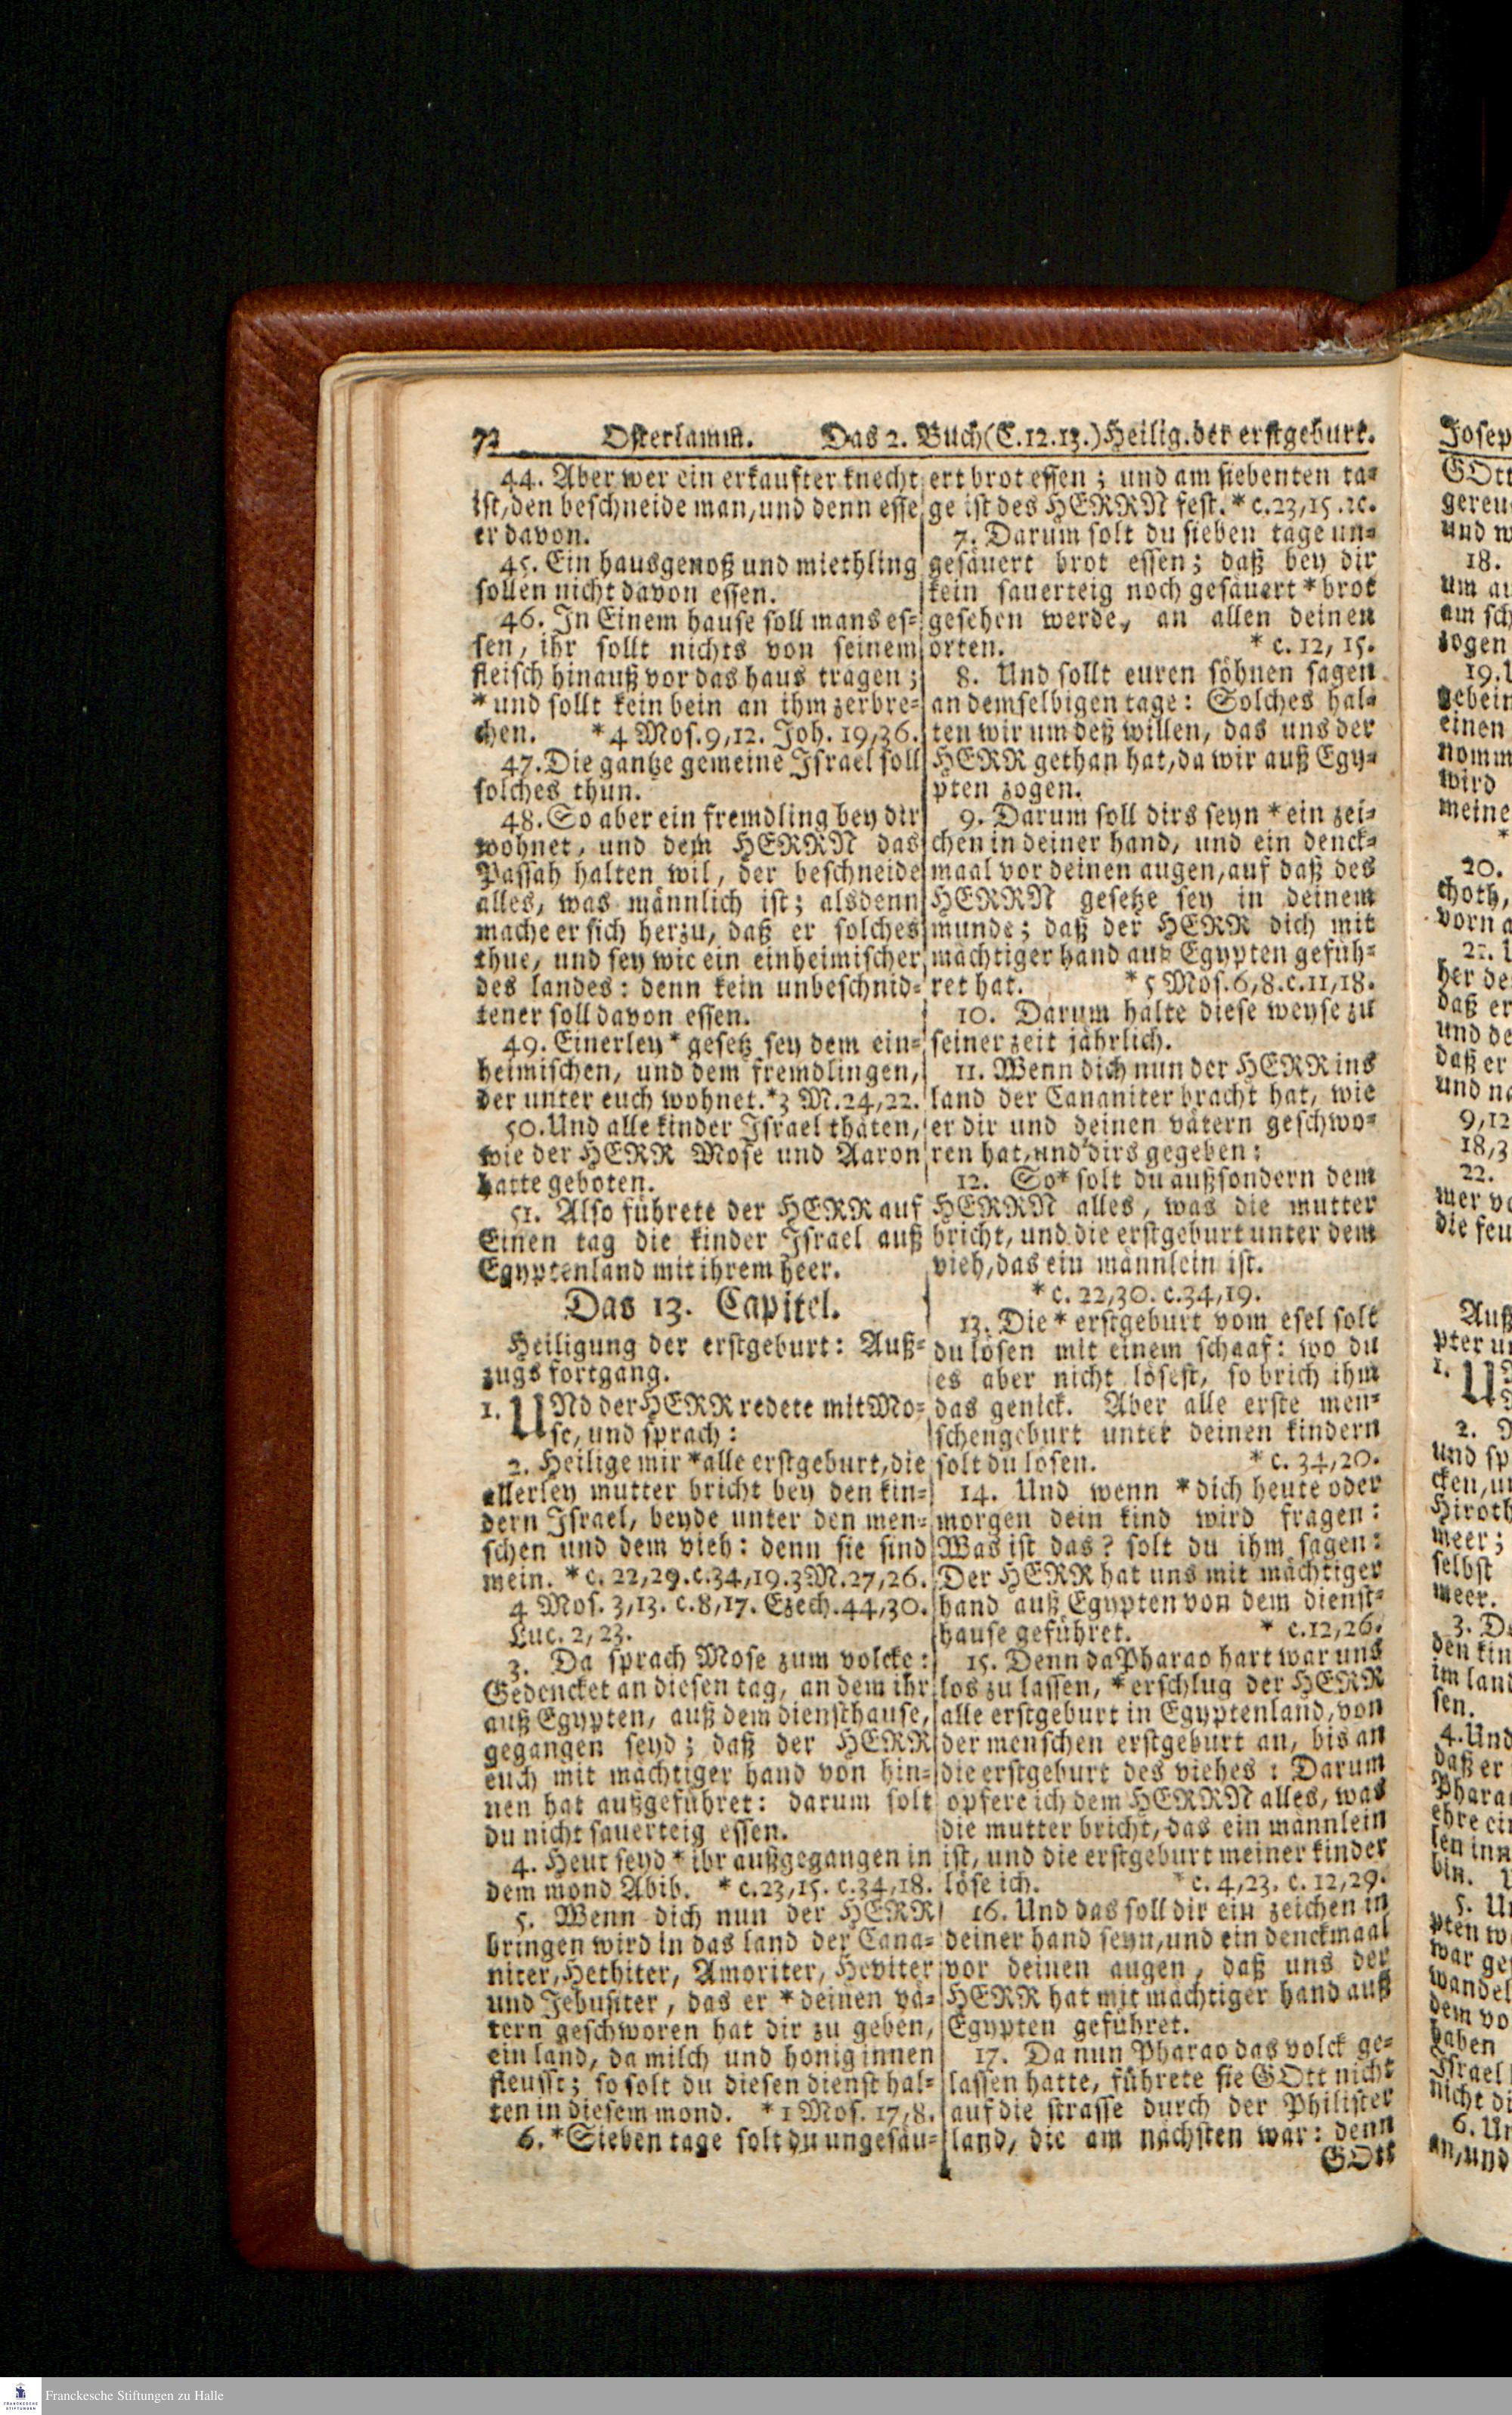 72 Osterlamm. Das 2. Buch (C.12.13.) Heilig. der erstgeburt.
44. Aber wer ein erkaufter knecht
ist, den beschneide man, und denn esse
er davon.
45. Ein hausgenoß und miethling
sollen nicht davon essen.
46. In Einem hause soll mans es-
sen, ihr sollt nichts von seinem
fleisch hinauß vor das haus tragen;
* und sollt kein bein an ihm zerbre-
chen. * 4 Mos. 9,12. Joh. 19,36.
47. Die gantze gemeine Israel soll
solches thun.
48. So aber ein fremdling bey dir
wohnet, und dem HERRN das
Passah halten wil, der beschneide
alles, was männlich ist; alsdenn
mache er sich herzu, daß er solches
thue, und sey wie ein einheimischer
des landes: denn kein unbeschnid-
tener soll davon essen.
49. Einerley * gesetz sey dem ein-
heimischen, und dem fremdlingen,
der unter euch wohnet. *3 M. 24,22.
50. Und alle kinder Israel thäten,
wie der HERR Mose und Aaron
hatte geboten.
51. Also führete der HERR auf
Einen tag die kinder Israel auß
Egyptenland mit ihrem heer.
Das 13. Capitel.
Heiligung der erstgeburt: Auß-
zugs fortgang.
1. UNd der HERR redete mit Mo-
se, und sprach:
2. Heilige mir * alle erstgeburt, die
allerley mutter bricht bey den kin-
dern Israel, beyde unter den men-
schen und dem vieh: denn sie sind
mein. * c. 22,29. c. 34,19. 3 M. 27,26.
4 Mos. 3,13. c. 8,17. Ezech. 44,30.
Luc. 2,23.
3. Da sprach Mose zum volcke:
Gedencket an diesen tag, an dem ihr
auß Egypten, auß dem diensthause,
gegangen seyd; daß der HERR
euch mit mächtiger hand von hin-
nen hat außgeführet: darum solt
du nicht sauerteig essen.
4. Heut seyd * ihr außgegangen in
dem mond Abib. * c. 23,15. c. 34,18.
5. Wenn dich nun der HERR
bringen wird in das land der Cana-
niter, Hethiter, Amoriter, Heviter
und Jebusiter, das er * deinen vä-
tern geschworen hat dir zu geben,
ein land, da milch und honig innen
fleusst; so solt du diesen dienst hal-
ten in diesem mond. * 1 Mos. 17,8.
6. * Sieben tage solt du ungesäu-
ert brot essen; und am siebenten ta-
ge ist des HERRN fest. * c. 23,15. ꝛc.
7. Darum solt du sieben tage un-
gesäuert brot essen; daß bey dir
kein sauerteig noch gesäuert * brot
gesehen werde, an allen deinen
orten. * c. 12, 15.
8. Und sollt euren söhnen sagen
an demselbigen tage: Solches hal-
ten wir um deß willen, das uns der
HERR gethan hat, da wir auß Egy-
pten zogen.
9. Darum soll dirs seyn * ein zei-
chen in deiner hand, und ein denck-
maal vor deinen augen, auf daß des
HERRN gesetze sey in deinem
munde; daß der HERR dich mit
mächtiger hand auß Egypten gefüh-
ret hat. * 5 Mos. 6,8. c. 11,18.
10. Darum halte diese weyse zu
seiner zeit jährlich.
11. Wenn dich nun der HERR ins
land der Cananiter bracht hat, wie
er dir und deinen vätern geschwo-
ren hat, und dirs gegeben:
12. So * solt du außsondern dem
HERRN alles, was die mutter
bricht, und die erstgeburt unter dem
vieh, das ein männlein ist.
* c. 22,30. c. 34,19.
13. Die * erstgeburt vom esel solt
du lösen mit einem schaaf: wo du
es aber nicht lösest, so brich ihm
das genick. Aber alle erste men-
schengeburt unter deinen kindern
solt du lösen. * c. 34,20.
14. Und wenn * dich heute oder
morgen dein kind wird fragen:
Was ist das? solt du ihm sagen:
Der HERR hat uns mit mächtiger
hand auß Egypten von dem dienst-
hause geführet. * c. 12,26.
15. Denn da Pharao hart war uns
los zu lassen, * erschlug der HERR
alle erstgeburt in Egyptenland, von
der menschen erstgeburt an, bis an
die erstgeburt des viehes: Darum
opfere ich dem HERRN alles, was
die mutter bricht, das ein männlein
ist, und die erstgeburt meiner kinder
löse ich. * c. 4,23. c. 12,29.
16. Und das soll dir ein zeichen in
deiner hand seyn, und ein denckmaal
vor deinen augen, daß uns der
HERR hat mit mächtiger hand auß
Egypten geführet.
17. Da nun Pharao das volck ge-
lassen hatte, führete sie GOtt nicht
auf die strasse durch der Philister
land, die am nächsten war: denn
GOtt
Franckesche Stiftungen zu Halle